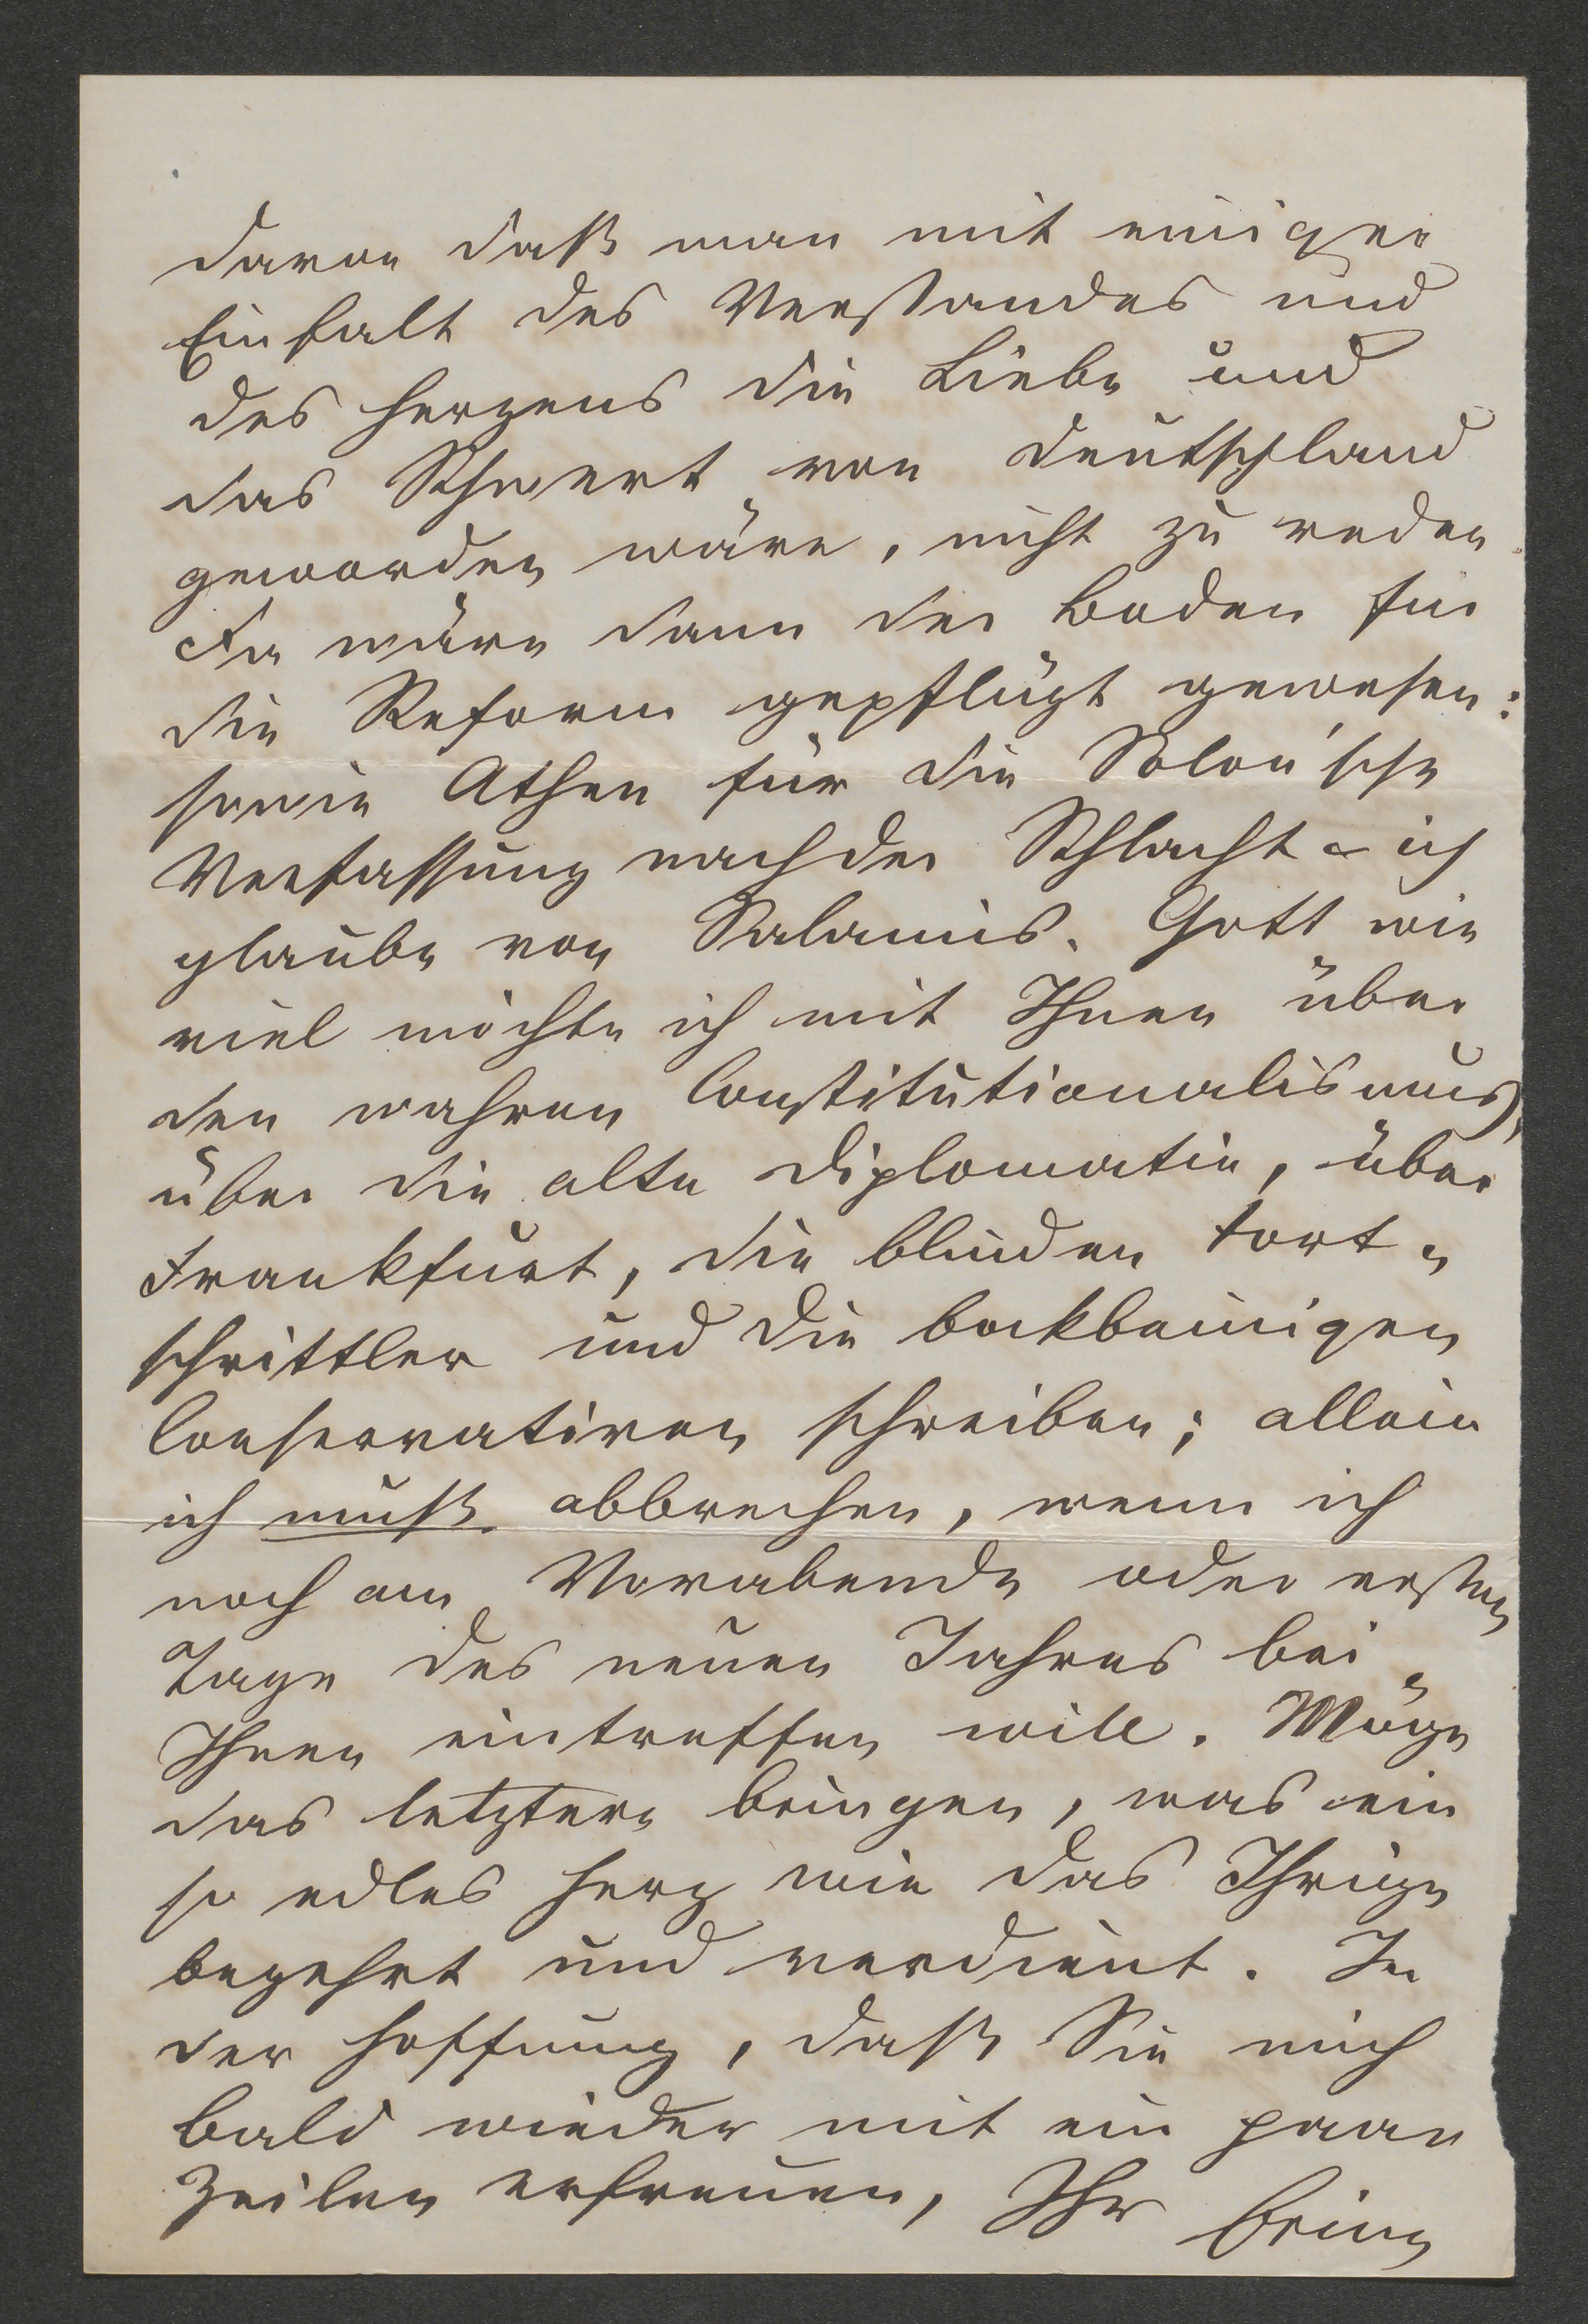 davon daß man mit einiger
Einfalt des Verstandes und
des Herzens die Liebe und
das Schwert von Deutschland
geworden wäre, nicht zu reden.
Da wäre dann der Boden für
die Reform gepflügt gewesen:
sowie Athen für die Solon'sche
Verfassung nach der Schlacht – ich
glaube von Salamis. Gott wie
viel möchte ich mit Ihnen über
den wahren Constitutionalismus,
über die alte Diplomatie, über
Frankfurt, die blinden Fort-
schrittler und die bockbeinigen
Conservativen schreiben; allein
ich muß abbrechen, wenn ich
noch am Vorabende oder ersten
Tage des neuen Jahres bei
Ihnen eintreffen will. Möge
das letztere bringen, was ein
so edles Herz wie das Ihrige
begehrt und verdient. In
der Hoffnung, daß Sie mich
bald wieder mit ein paar
Zeilen erfreuen, Ihr